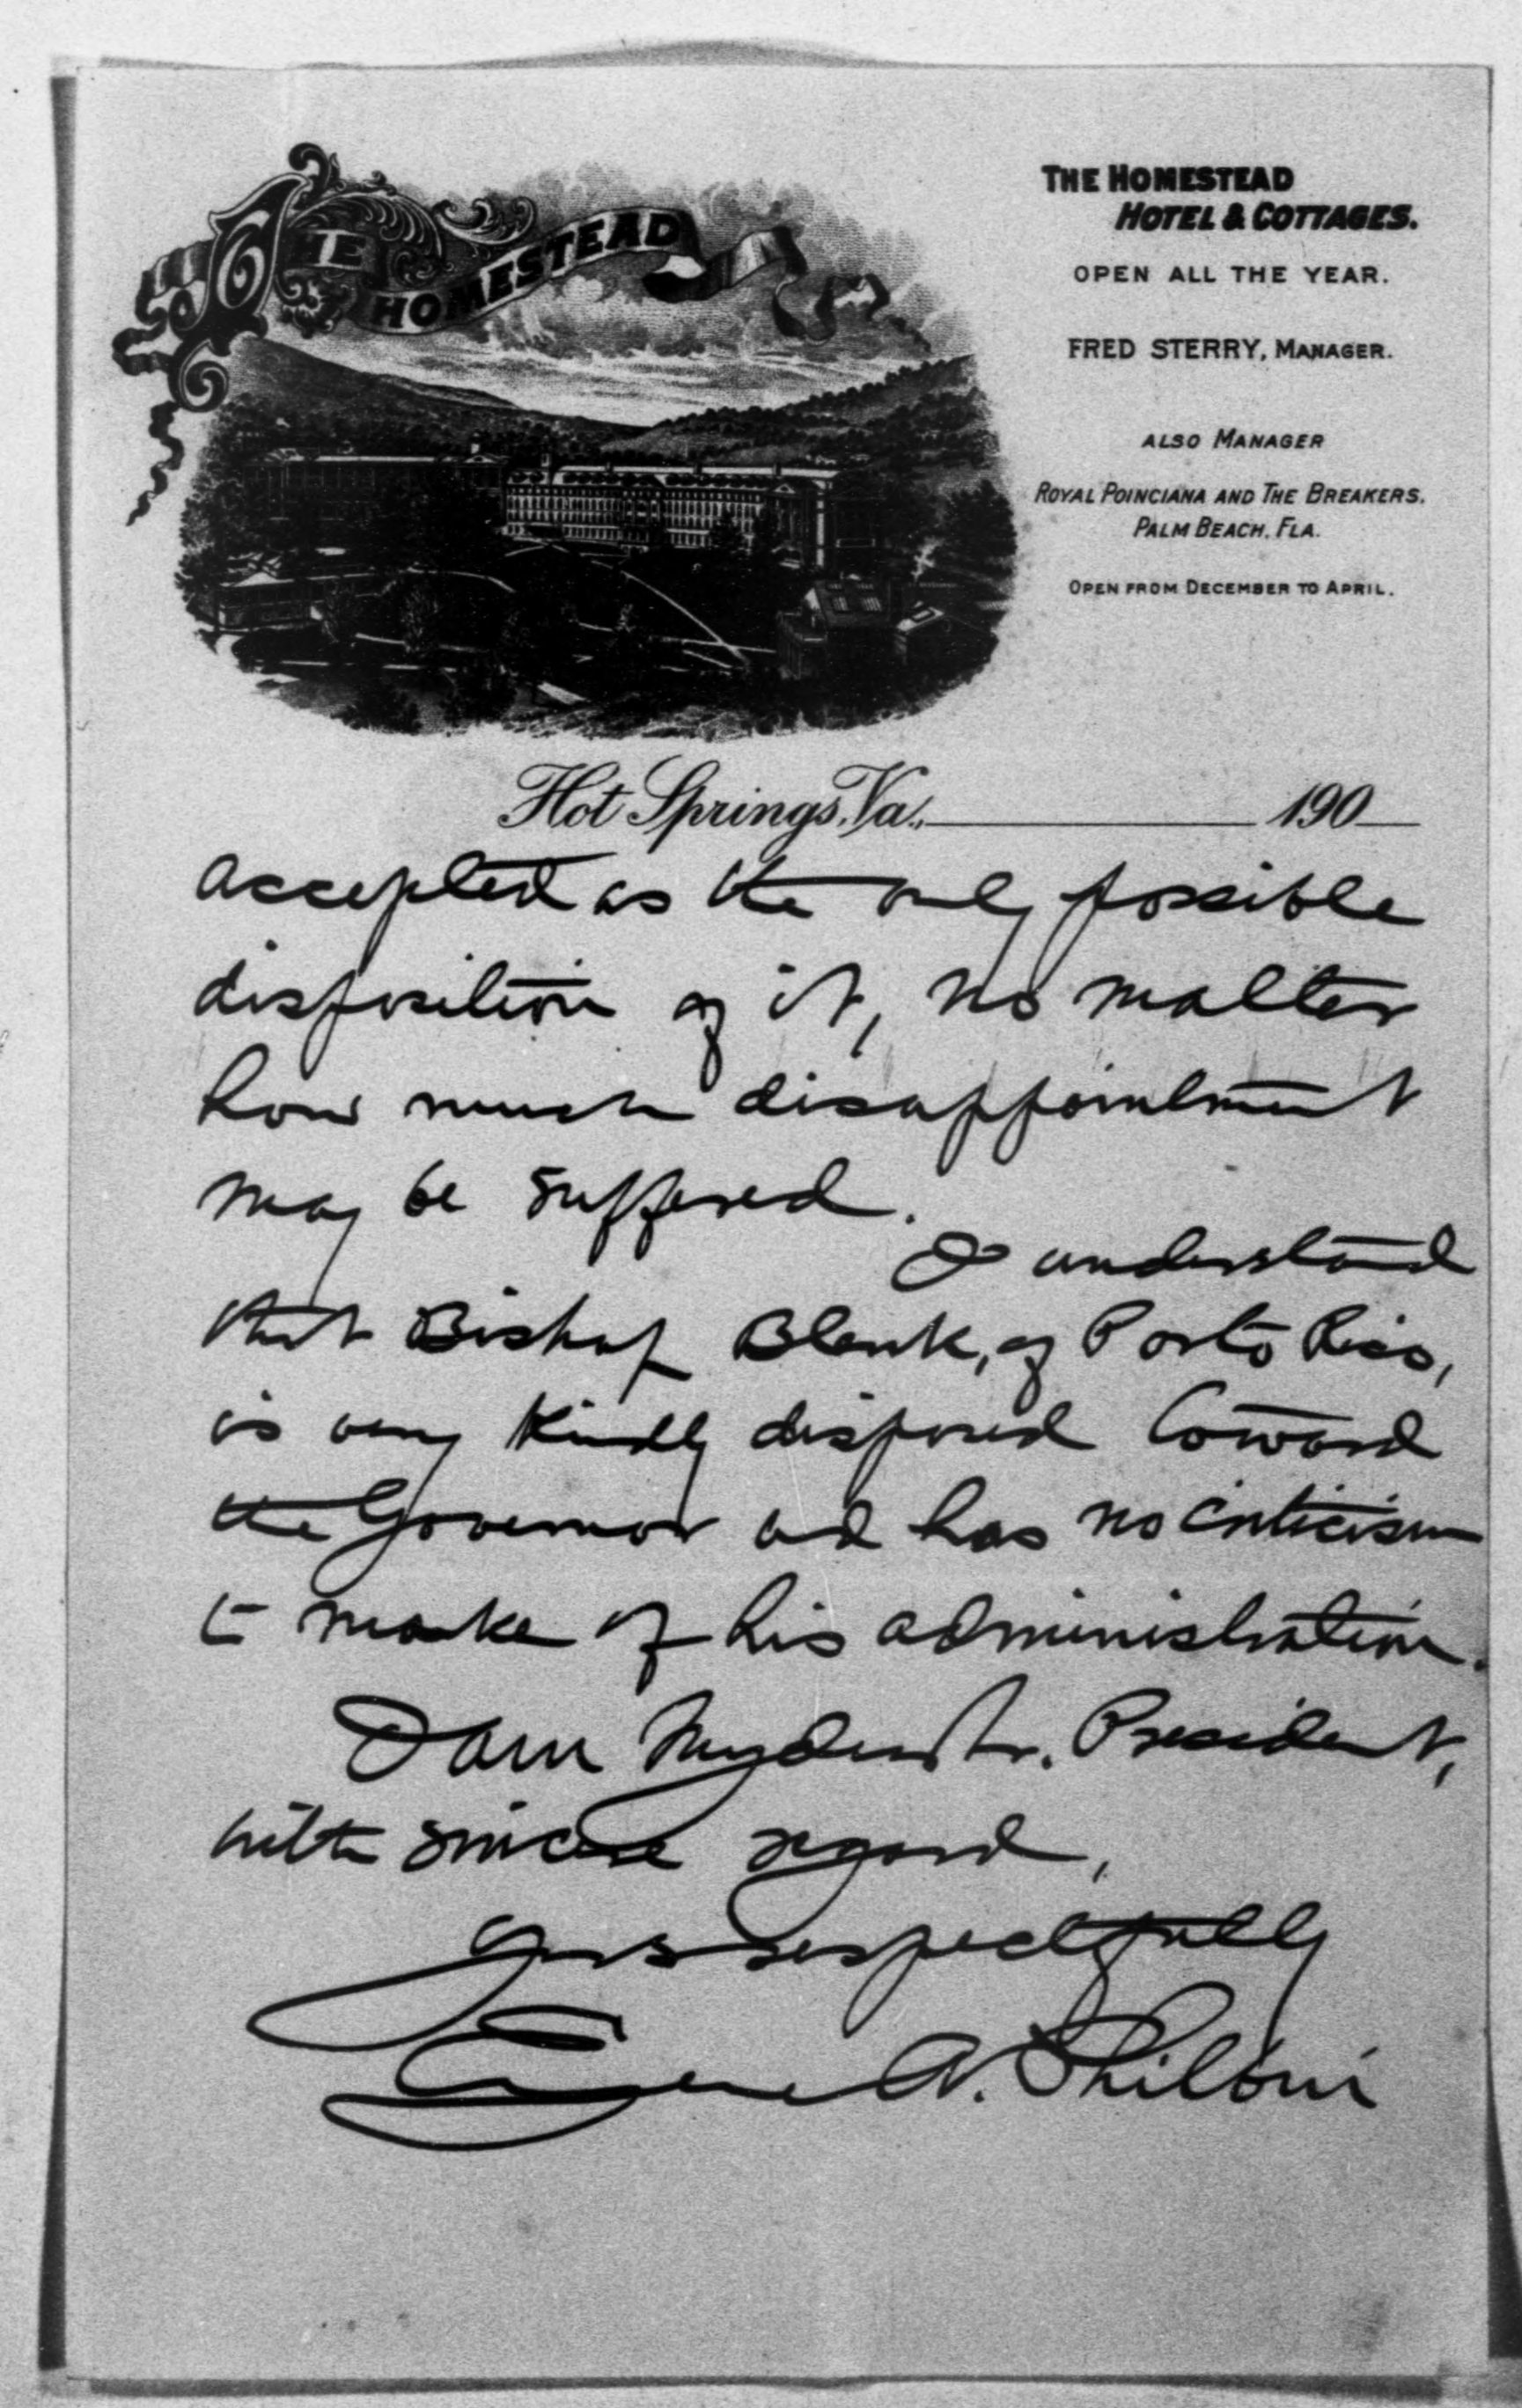 THE HOMESTEAD
THE HOMESTEAD
HOTEL & COTTAGES.
OPEN ALL THE YEAR.
FRED STERRY, MANAGER.
ALSO MANAGER
ROYAL POINCIANA AND THE BREAKERS.
PALM BEACH, FLA.
OPEN FROM DECEMBER TO APRIL.
Hot Springs, Va., 190
accepted as the only possible
disposition of it, no matter
how much disappointment
may be suffered.
I understand
that Bishop Blenk, of Porto Rico,
is very kindly disposed toward
the Governor and has no criticism
to make of his administration.
I am my dear Mr. President,
with sincere regard,
yours respectfully
Eugene A. Philbin